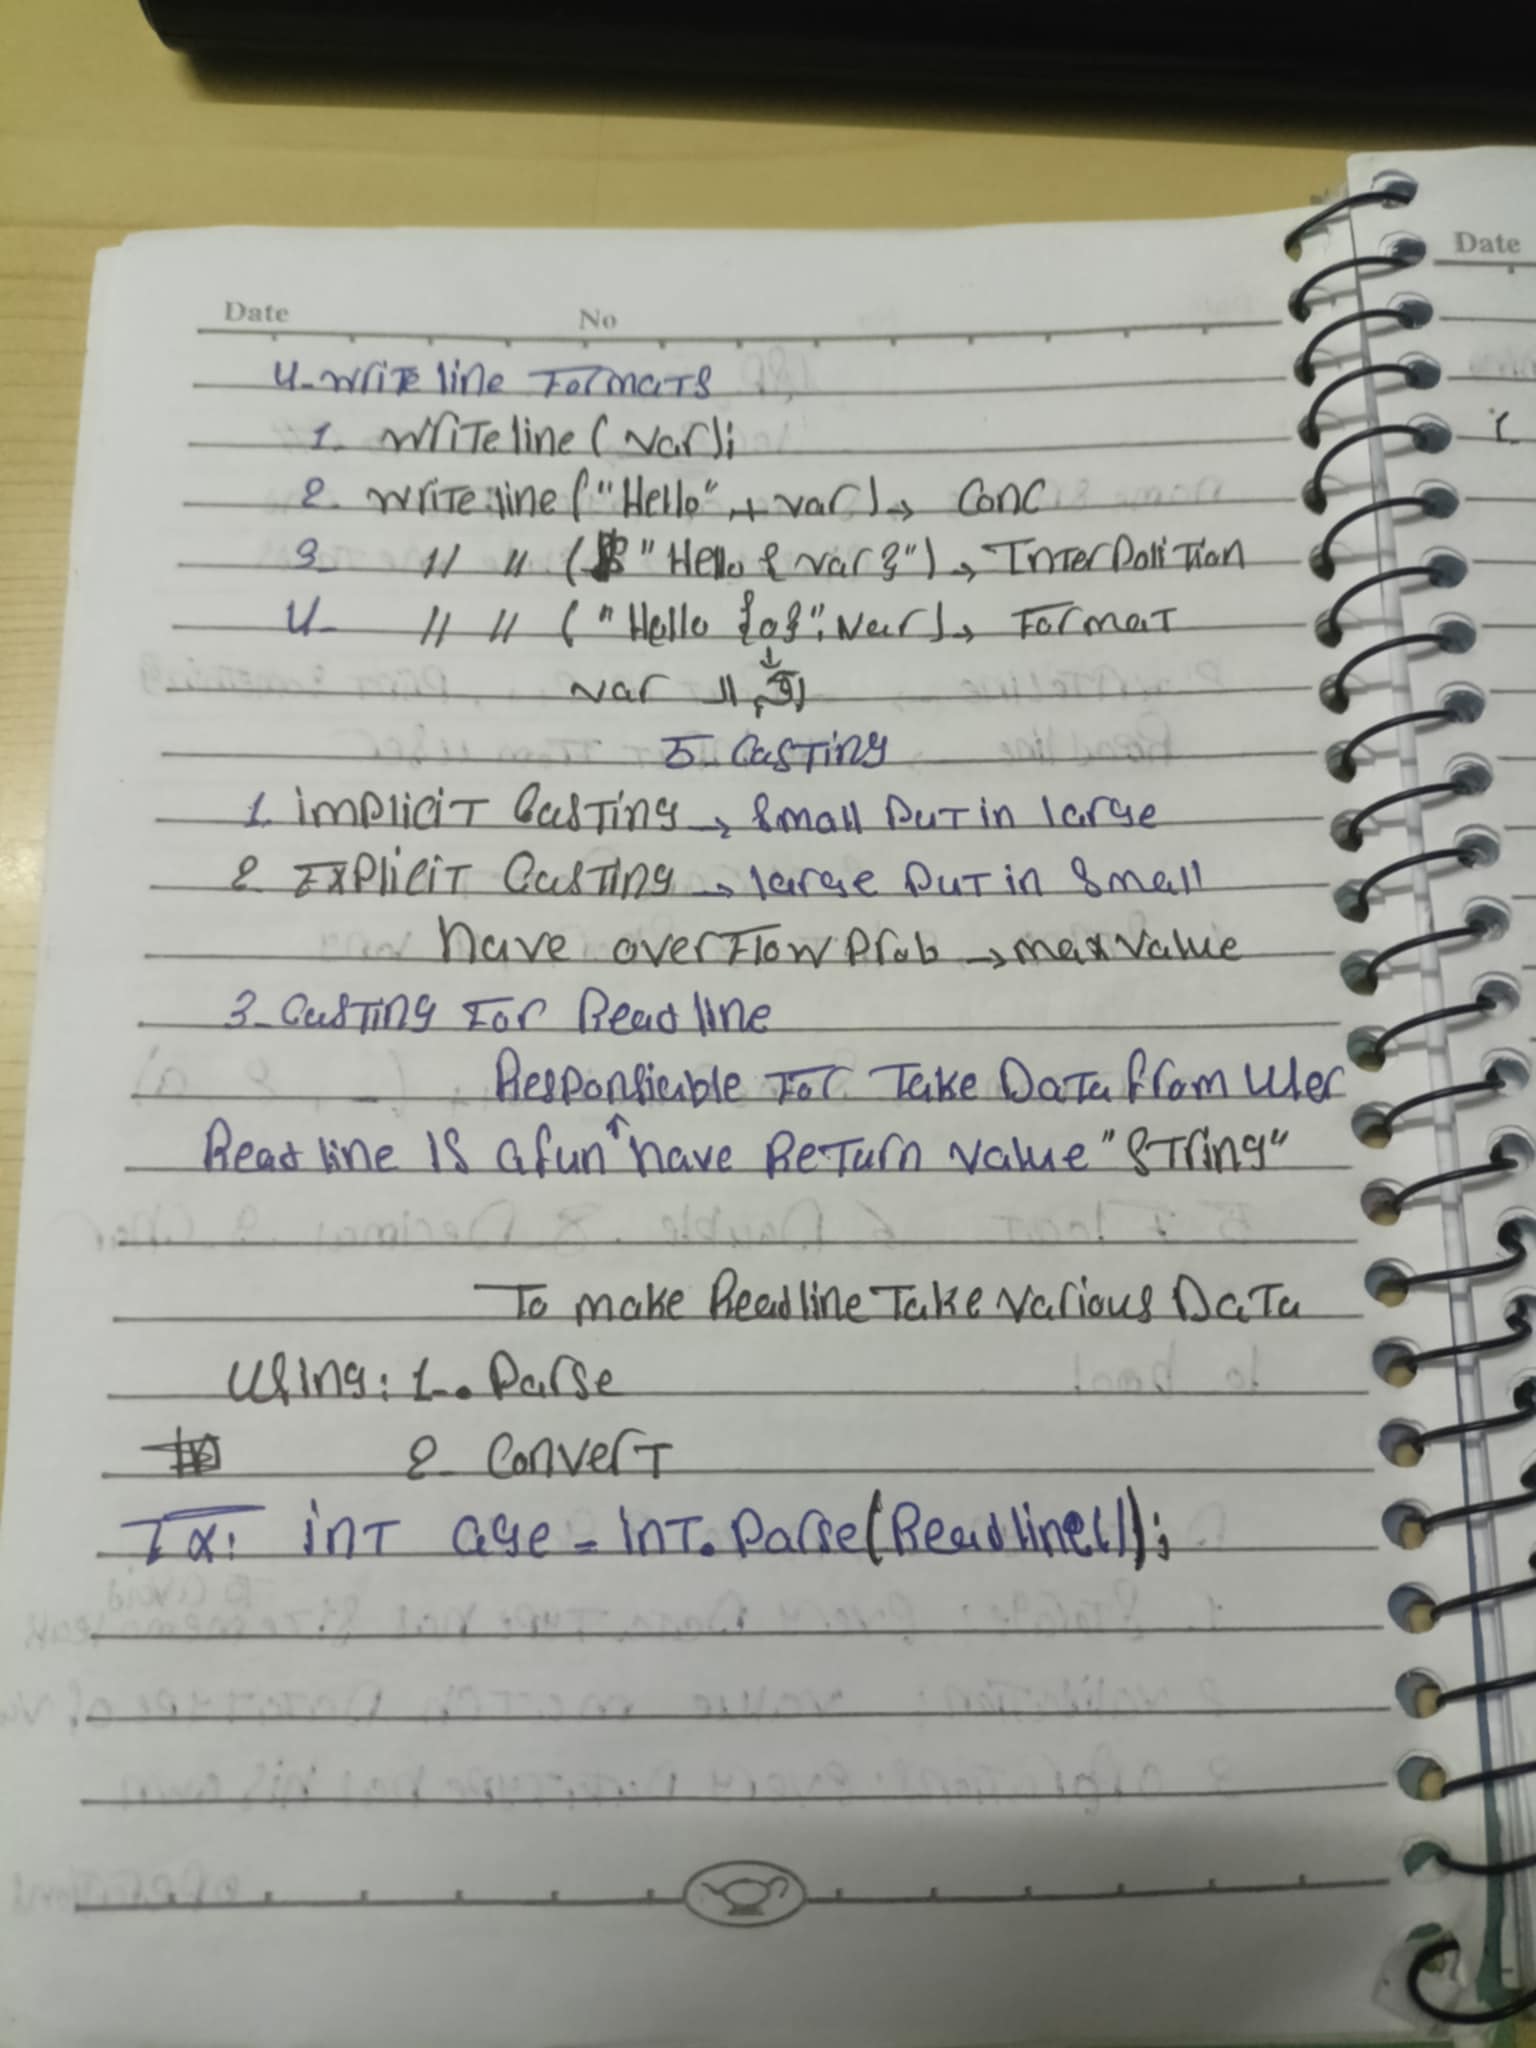 Date No
4- Write line Formats
1- Write line (var);
2- Write line ("Hello" + var) → Conc
3- // // ($"Hello {var}") → InterPolition
4- // // ("Hello {0}", var) → Format
var
5 Casting
1. implicit Casting → Small Put in large
2 Explicit Casting → large Put in Small
have overFlow Prob → max value
3- Casting For Read line
Responsicable For Take Data from User
Read line is a fun ↑ have Return value "String"
To make Readline Take various Data
Using: 1-. Parse
2- Convert
Ex: int age = int.Parse(Readline());
Date
1-